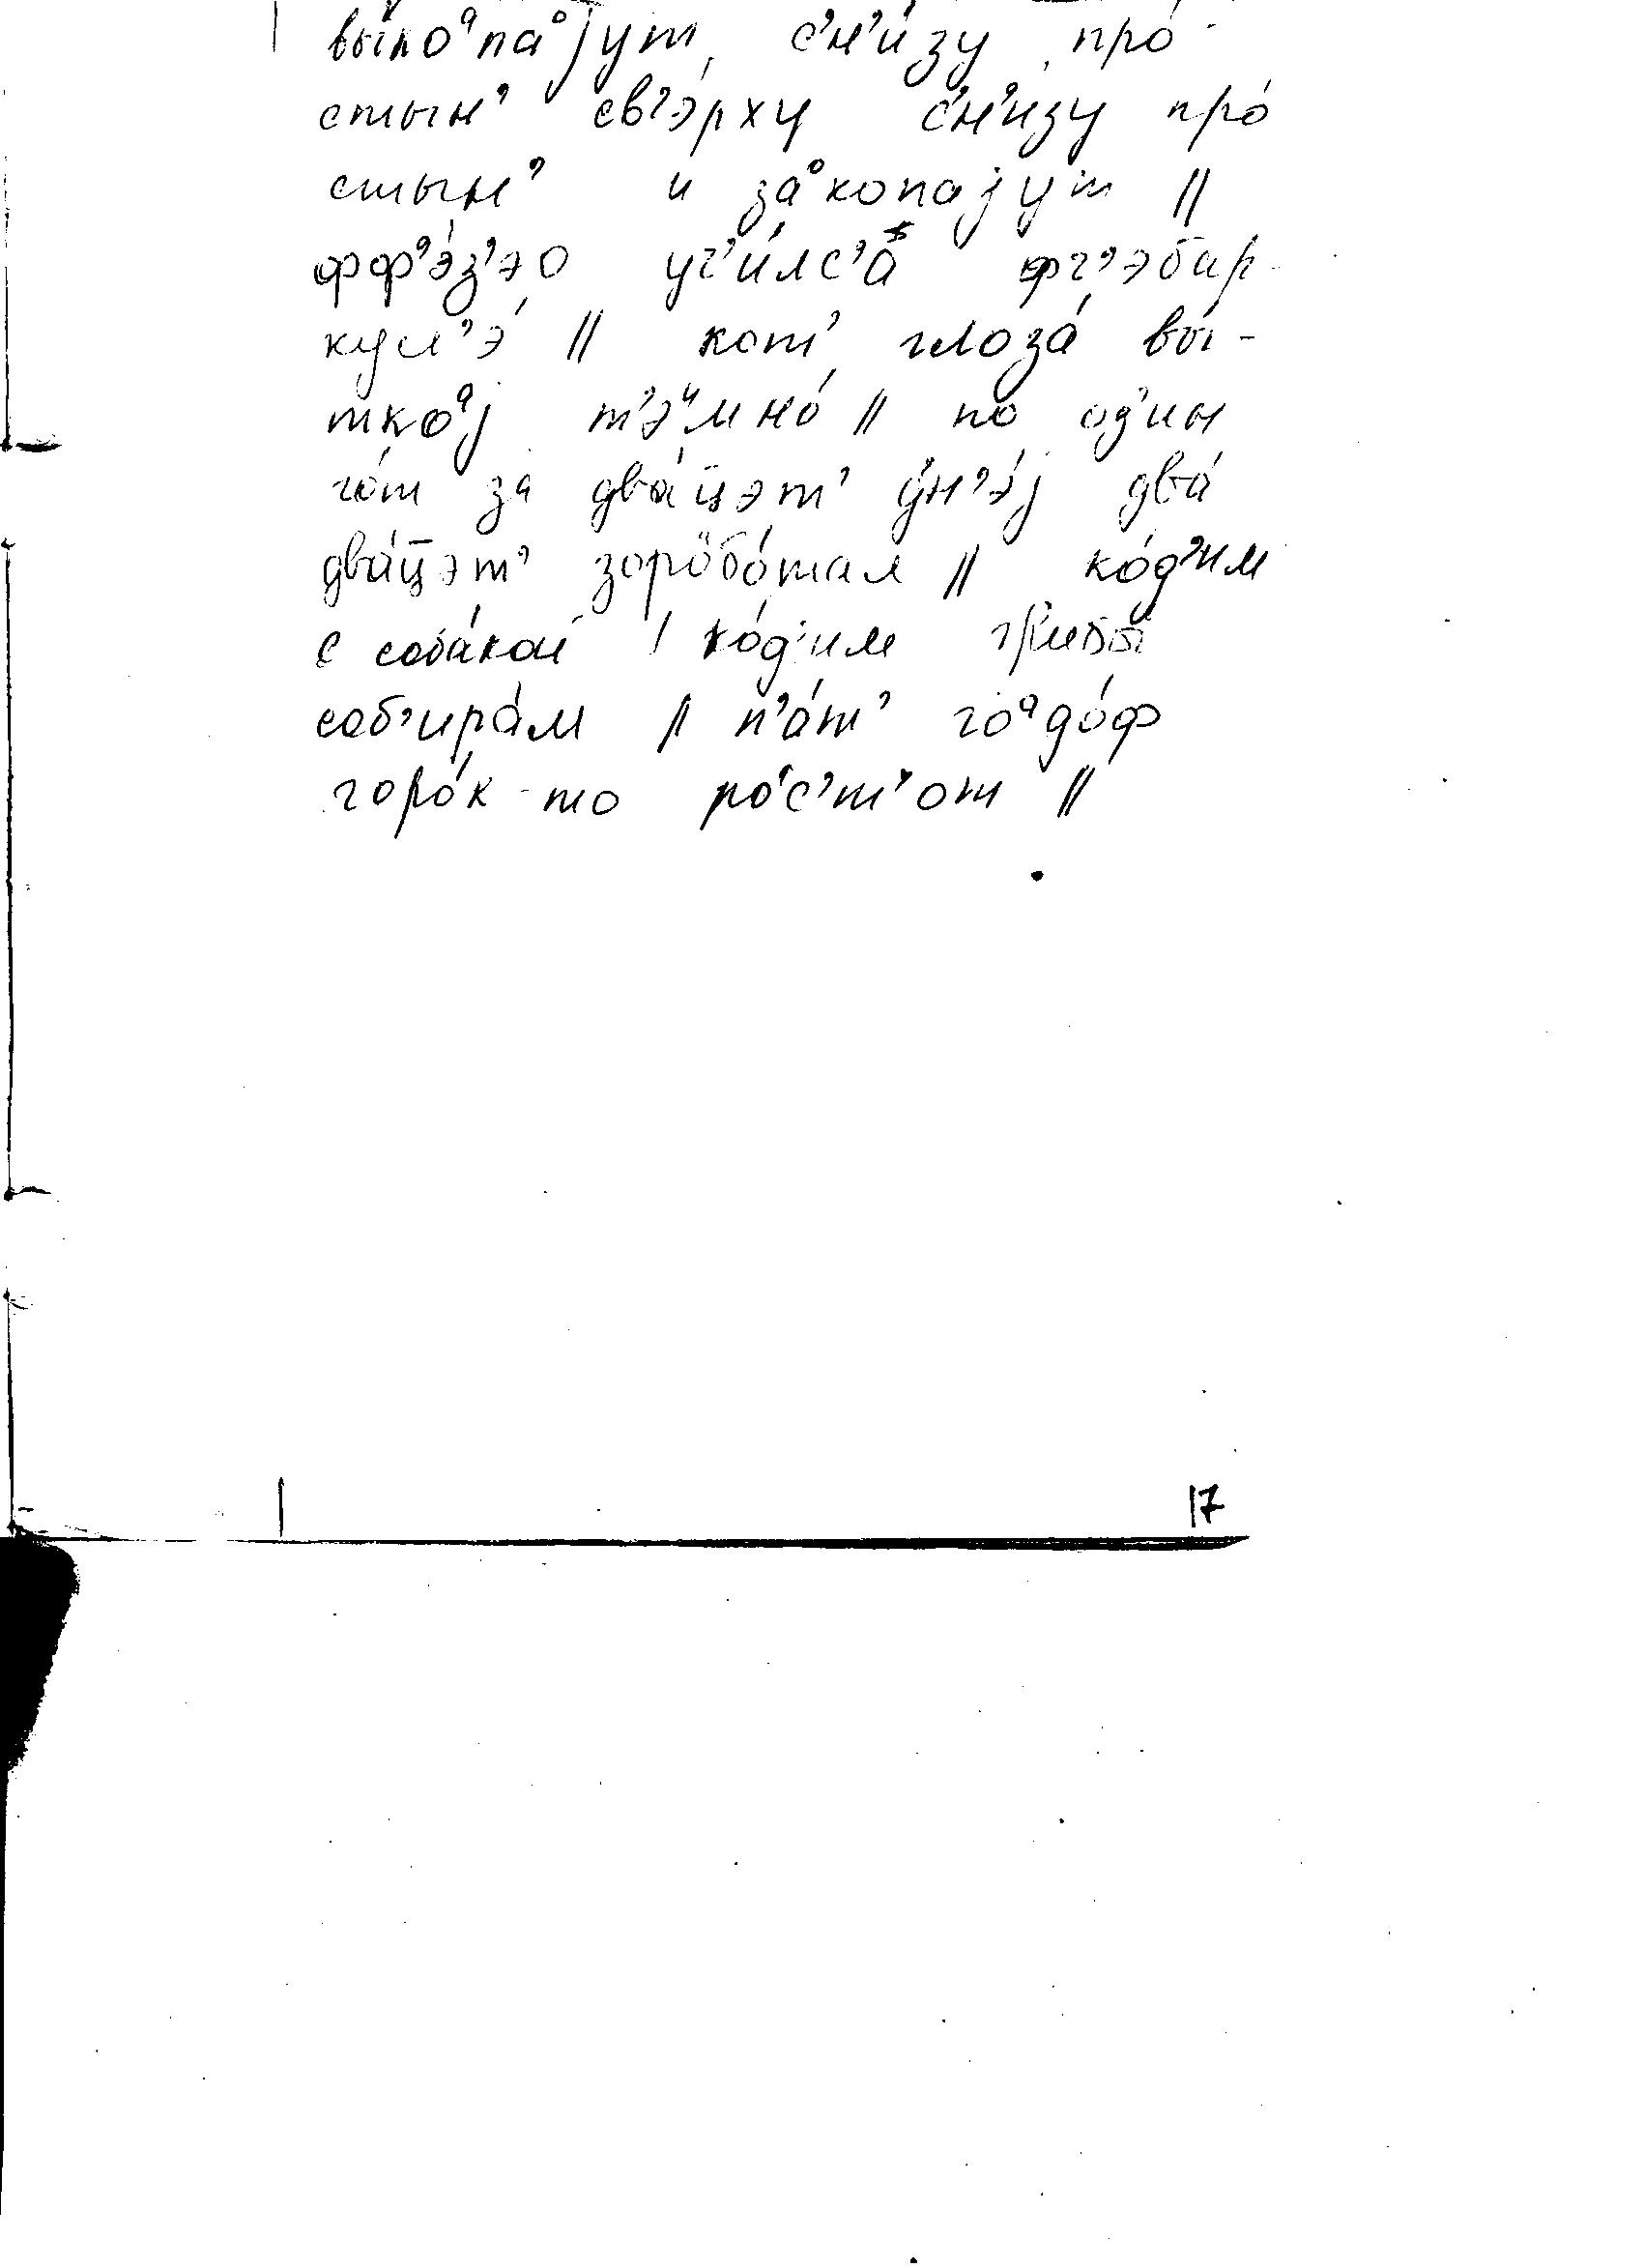 вы́коᵃпаᵒjут, с’н’и́зу про́-
стын’ св’э́рху с’н’и́зу про́
стын’ и заᵒкопаjут //
фф’э́з’эо уч’и́лс’а фч’эбар-
кул’э́ // кот’ глоза́ вы́-
ткоᵃj т’эᵘмно́ // по од’ин
го́т за два́ц̄эт’ дн’э́j два́
два́ц̄эт’ зоробо́тал // ко́д’им
с соба́кой / ко́д’им грибы́
соб’ира́м // п’а́т’ гоᵃдо́ф
горо́к-то ро́с’т’от //
17